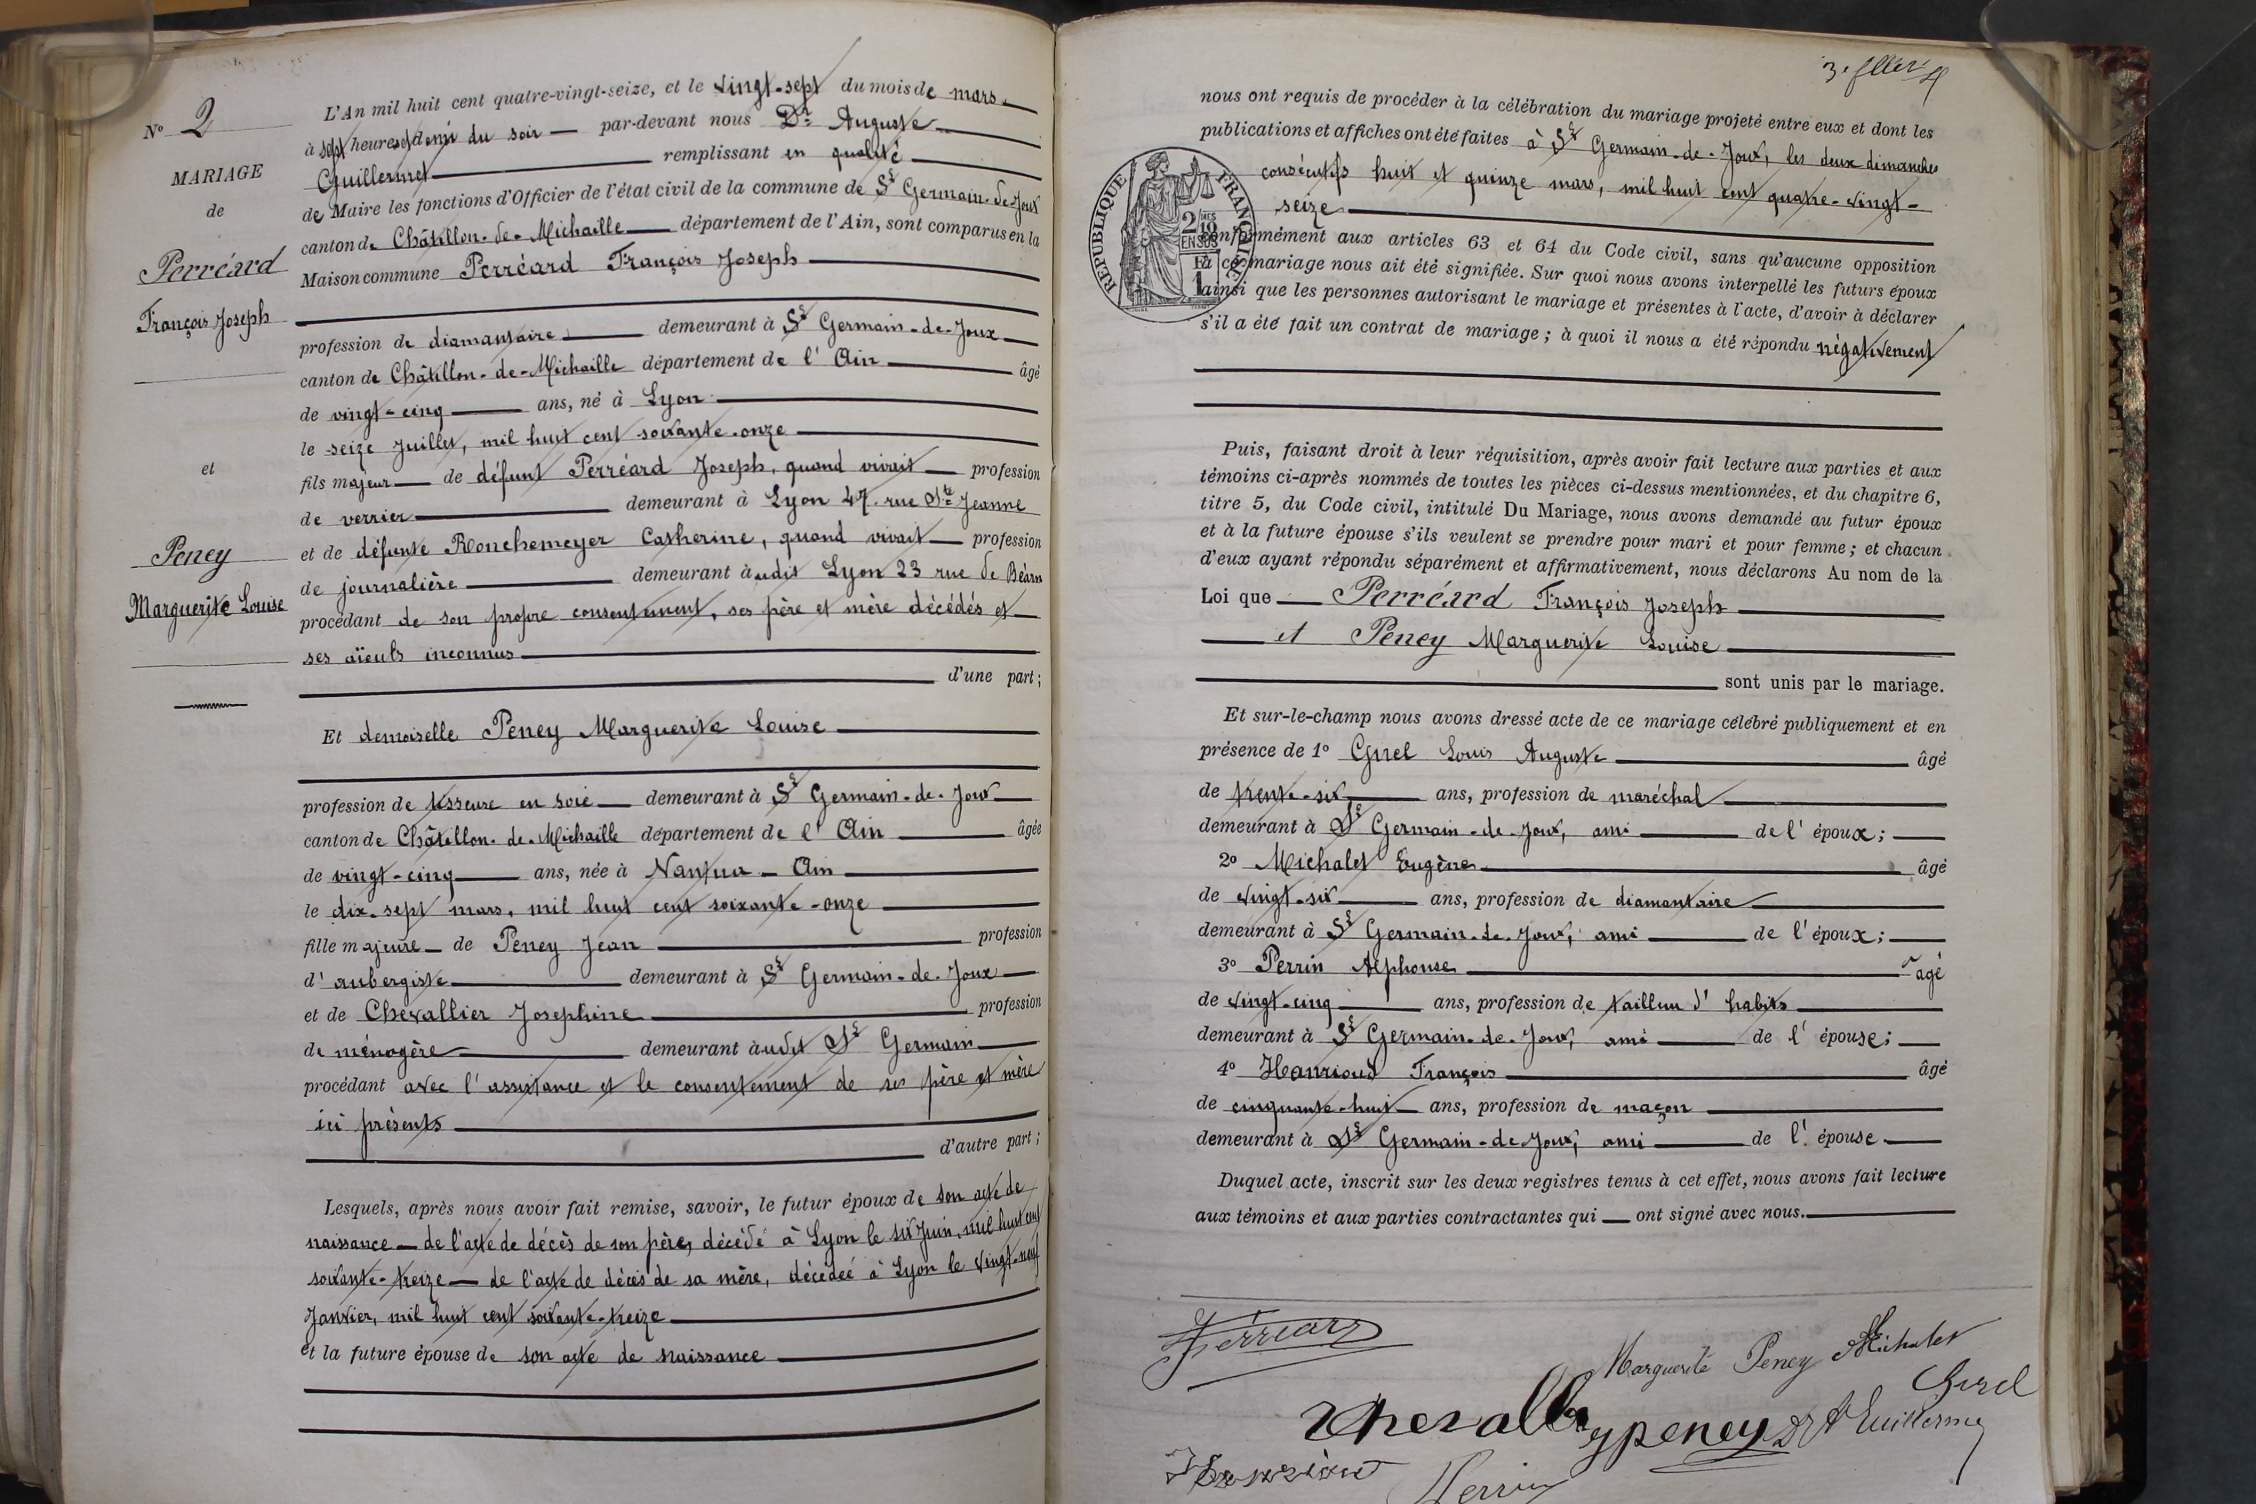 N° 2
MARIAGE
de
Perréard
François Joseph
et
Peney
Marguerite Louise
L'An mil huit cent quatre-vingt-seize, et le vingt-sept du mois de mars
à sept heures et demi du soir par-devant nous Dr Auguste
Guillermet remplissant en qualité
de Maire les fonctions d'Officier de l'état civil de la commune de St Germain-de-Joux
canton de Châtillon-de-Michaille département de l'Ain, sont comparus en la
Maison commune Perréard François Joseph
profession de diamantaire demeurant à St Germain-de-Joux
canton de Châtillon-de-Michaille département de l'Ain âgé
de vingt-cinq ans, né à Lyon
le seize Juillet, mil huit cent soixante-onze
fils majeur de défunt Perréard Joseph, quand vivait profession
de verrier demeurant à Lyon 47 rue Ste Jeanne
et de défunte Ronchemeyer Catherine, quand vivait profession
de journalière demeurant àudit Lyon 23 rue de Béarn
procédant de son propre consentement, ses père et mère décédés et
ses aïeuls inconnus
d'une part;
Et demoiselle Peney Marguerite Louise
profession de tisseure en soie demeurant à St Germain-de-Joux
canton de Châtillon-de-Michaille département de l'Ain âgée
de vingt-cinq ans, née à Nantua - Ain
le dix-sept mars, mil huit cent soixante-onze
fille majeure de Peney Jean profession
d'aubergiste demeurant à St Germain-de-Joux
et de Chevallier Josephine profession
de ménagère demeurant àudit St Germain
procédant avec l'assistance et le consentement de ses père et mère
ici présents
d'autre part;
Lesquels, après nous avoir fait remise, savoir, le futur époux de son acte de
naissance — de l'acte de décès de son père, décédé à Lyon le six Juin, mil huit cent
soixante-treize — de l'acte de décès de sa mère, décédeé à Lyon le vingt-neuf
Janvier, mil huit cent soixante-treize
et la future épouse de son acte de naissance
nous ont requis de procéder à la célébration du mariage projeté entre eux et dont les
publications et affiches ont été faites à St Germain-de-Joux, les deux dimanches
consécutifs huit et quinze mars, mil huit cent quatre-vingt-
seize
RÉPUBLIQUE FRANÇAISE
2/10
EN SUS
1
conformément aux articles 63 et 64 du Code civil, sans qu'aucune opposition
à ce mariage nous ait été signifiée. Sur quoi nous avons interpellé les futurs époux
ainsi que les personnes autorisant le mariage et présentes à l'acte, d'avoir à déclarer
s'il a été fait un contrat de mariage; à quoi il nous a été répondu négativement
Puis, faisant droit à leur réquisition, après avoir fait lecture aux parties et aux
témoins ci-après nommés de toutes les pièces ci-dessus mentionnées, et du chapitre 6,
titre 5, du Code civil, intitulé Du Mariage, nous avons demandé au futur époux
et à la future épouse s'ils veulent se prendre pour mari et pour femme; et chacun
d'eux ayant répondu séparément et affirmativement, nous déclarons Au nom de la
Loi que Perréard François Joseph
et Peney Marguerite Louise
sont unis par le mariage.
Et sur-le-champ nous avons dressé acte de ce mariage célébré publiquement et en
présence de 1° Gurel Louis Auguste âgé
de trente-six ans, profession de maréchal
demeurant à St Germain-de-Joux, ami de l'époux;
2° Michalet Eugène âgé
de vingt-six ans, profession de diamantaire
demeurant à St Germain-de-Joux, ami de l'époux;
3° Perrin Alphonse âgé
de vingt-cinq ans, profession de tailleur d'habits
demeurant à St Germain-de-Joux, ami de l'épouse;
4° Hanrioud François âgé
de cinquante-huit ans, profession de maçon
demeurant à St Germain-de-Joux, ami de l'épouse
Duquel acte, inscrit sur les deux registres tenus à cet effet, nous avons fait lecture
aux témoins et aux parties contractantes qui — ont signé avec nous.
Perreard
Marguerite Peney Michalet
Gurel
Chevallier
J peney Dr A Guillermet
Perrin